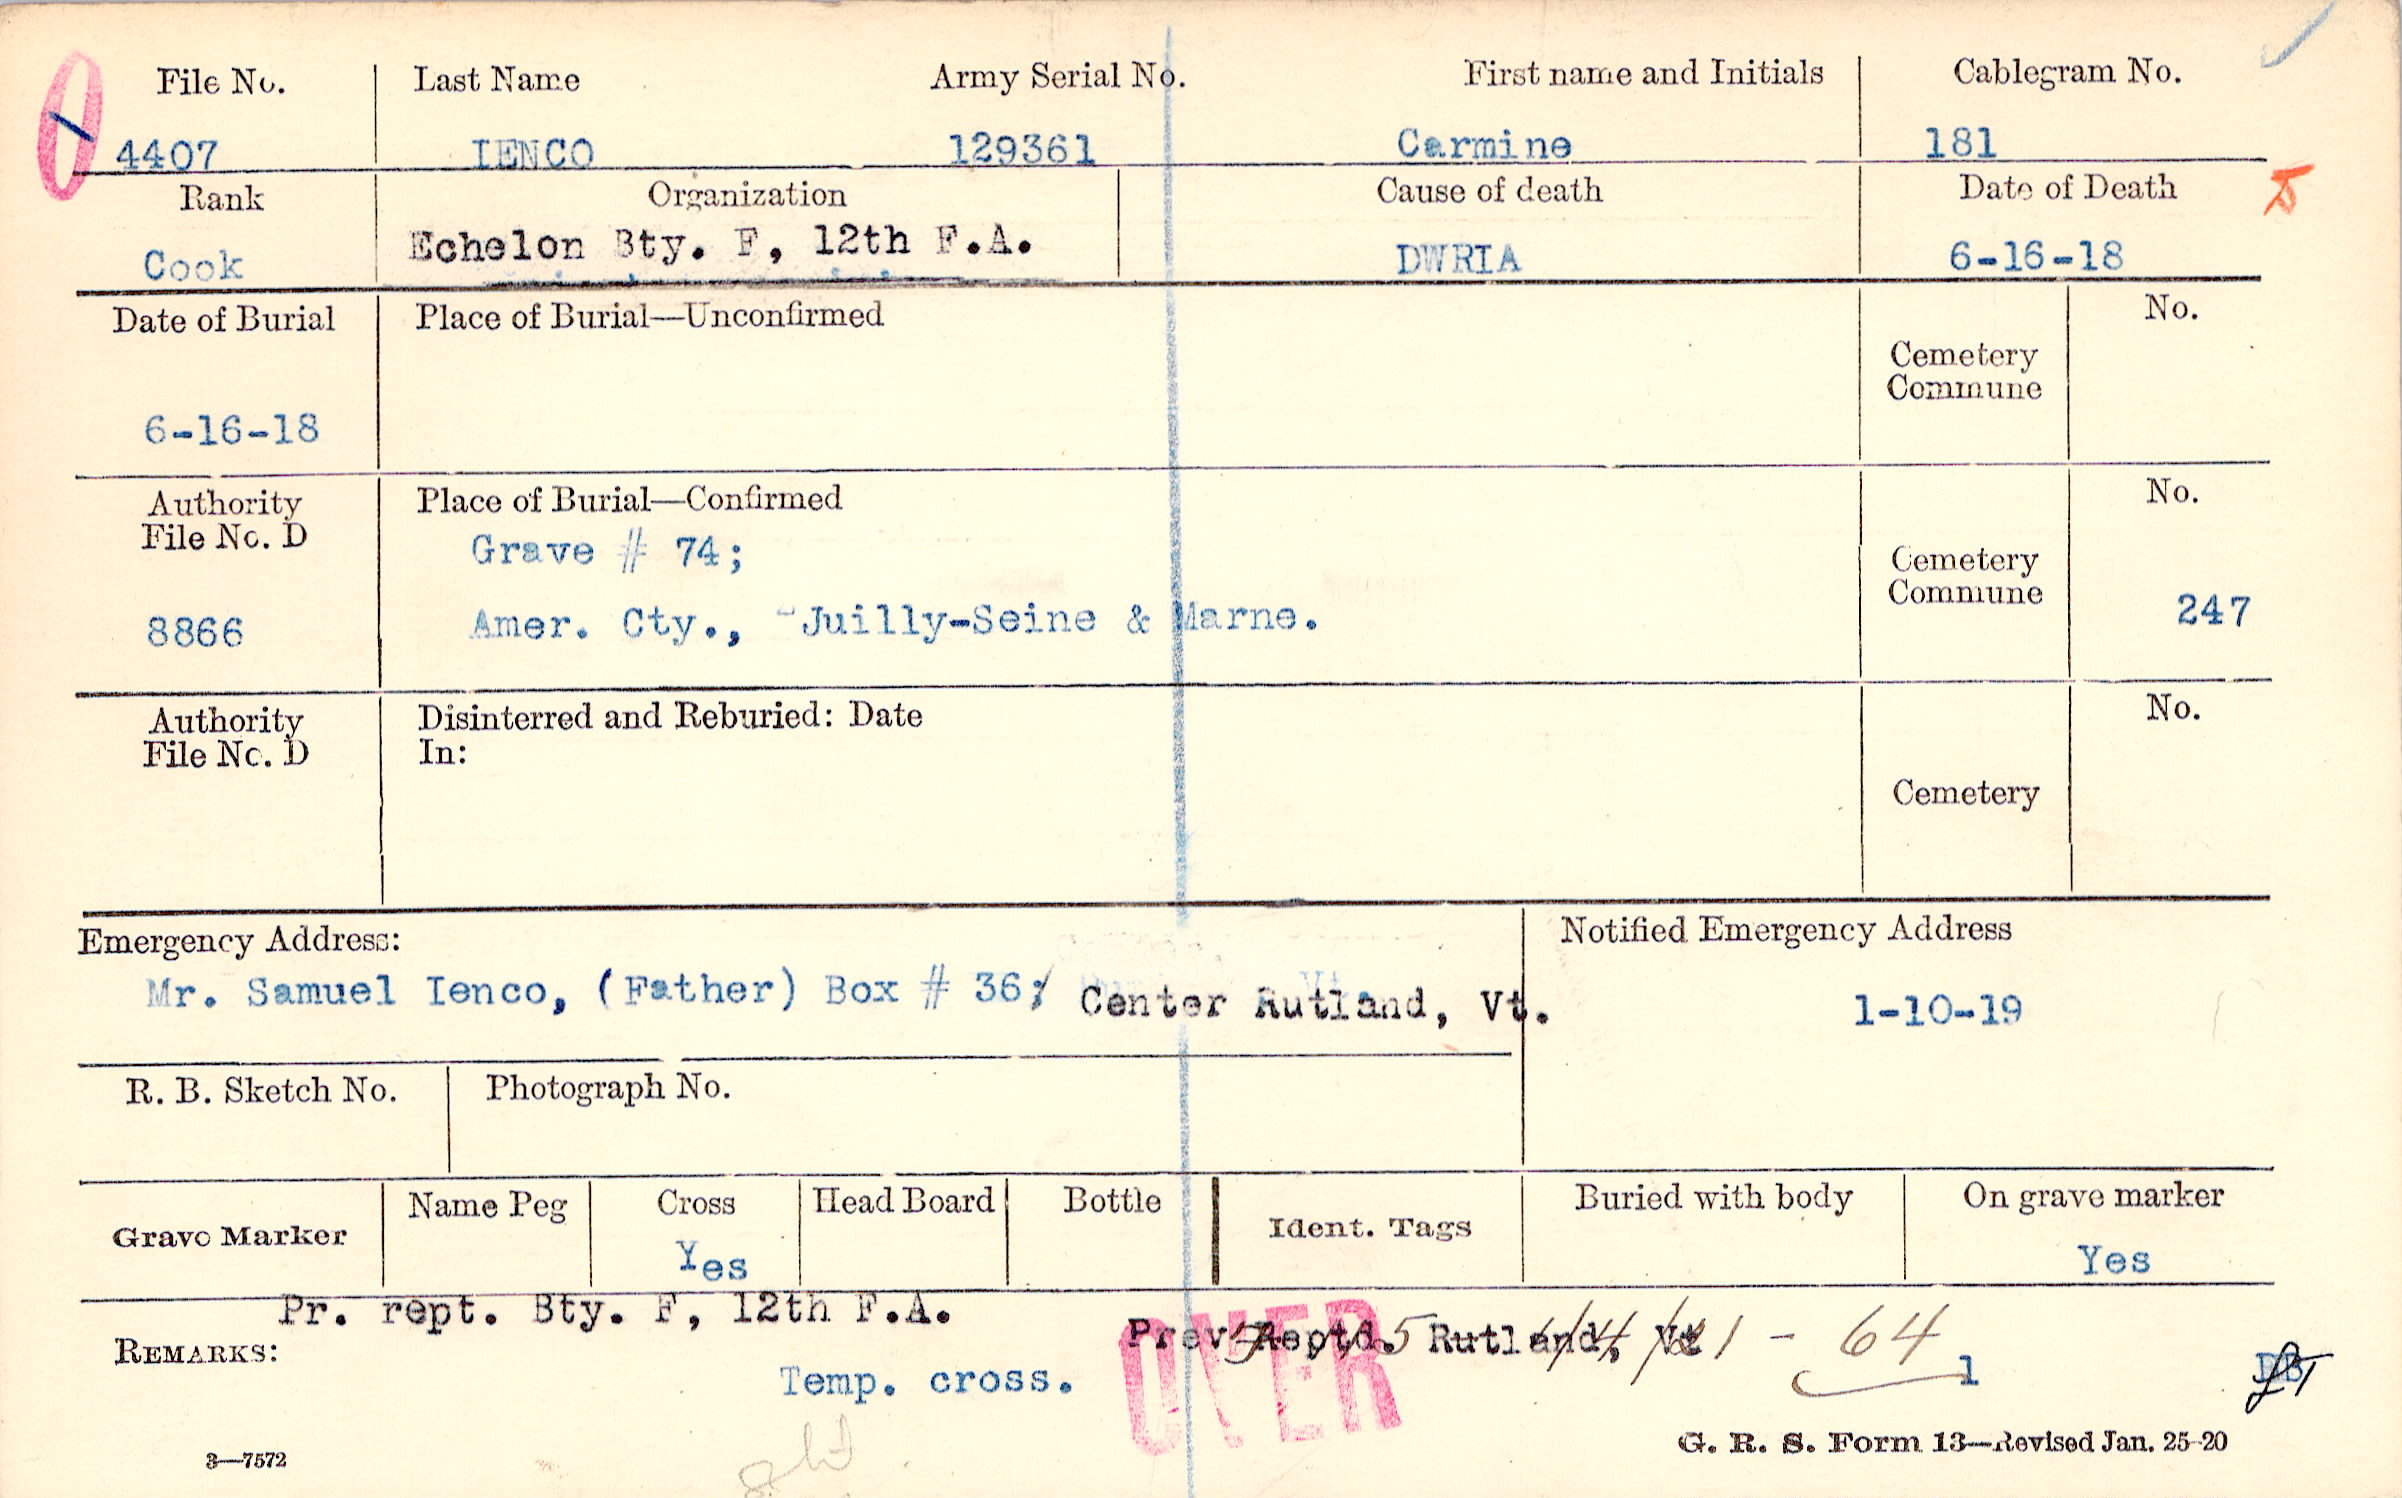 File No. Last Name Army Serial No. First name and Initials Cablegram No.
4407 IENCO 129361 Carmine 181
Rank Organization Cause of death Date of Death
Cook Echelon Bty. F, 12th F.A. DWRIA 6-16-18
Date of Burial Place of Burial—Unconfirmed No.
Cemetery
Commune
6-16-18
Authority Place of Burial—Confirmed No.
File No. D
Grave # 74;
Cemetery
Commune
8866 Amer. Cty., Juilly-Seine & Marne. 247
Authority Disinterred and Reburied: Date No.
File No. D In:
Cemetery
Emergency Address: Notified Emergency Address
Mr. Samuel Ienco, (Father) Box # 36; Center Rutland, Vt. 1-10-19
R. B. Sketch No. Photograph No.
Grave Marker Name Peg Cross Head Board Bottle Ident. Tags Buried with body On grave marker
Yes Yes
Pr. rept. Bty. F, 12th F.A.
REMARKS: Prev. Reptd. Rutland, Vt - 64
Temp. cross. OVER 1
3—7572 G. R. S. Form 13—Revised Jan. 25-20